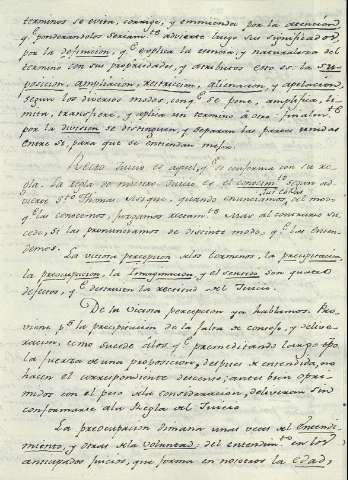 terminos se evita, corrage, y enmienda por la atencion
q.e ponderandolos seriam.te advierte luego sus significados
por la definicion, q.e explica la essencia, y naturaleza del
termino con sus propiedades, y atributos esto es: la su-
posicion, ampliacion, restriccion, alienacion, y apelacion,
segun los diversos modos, con q.e se pone, amplifica, li-
mita, transfiere, y aplica un termino à otro: finalm.te
por la division se distinguen, y separan las partes unidas
entre si para que se entiendan mejor.
Recto Juicio es aquel, q.e se conforma con su re-
gla. La regla de nuestro Juicio es el conocim.to segun ad-
vierte S.to Thomas
las cosas
q.e las conocemos, juzgamos rectam.te al contrario su-
cede, si las pronunciamos de distinto modo, q.e las enten-
demos.
La viciosa percepcion de los terminos, la precipitacion,
la preocupacion, la Imaginacion, y el sentido son quatro
defectos, q.e destruien la rectitud del Juicio.
De la viciosa percepcion ya hablamos. Pro-
viene p.s la precipitacion de la falta de consejo, y delive-
racion; como sucede à los q.e premeditando largo tpo
la fuerza de una proposicion, despues de entendida, no
hacen el correspondiente
con el peso de la consideracion, deliveran sin
conformarse à la Regla del Juicio
La preocupacion dimana unas veces del Entendi-
miento, y otras de la voluntad: del entendim.to en los
anticipados juicios, que forma en nosotros la EDAD,